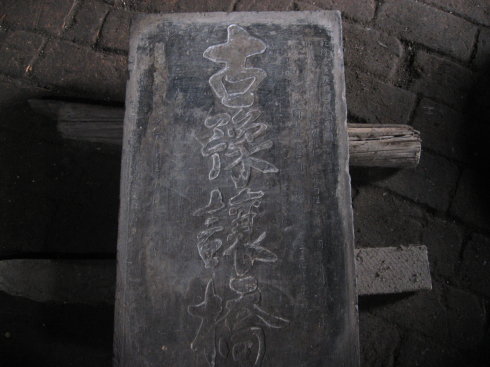 古豫讓橋